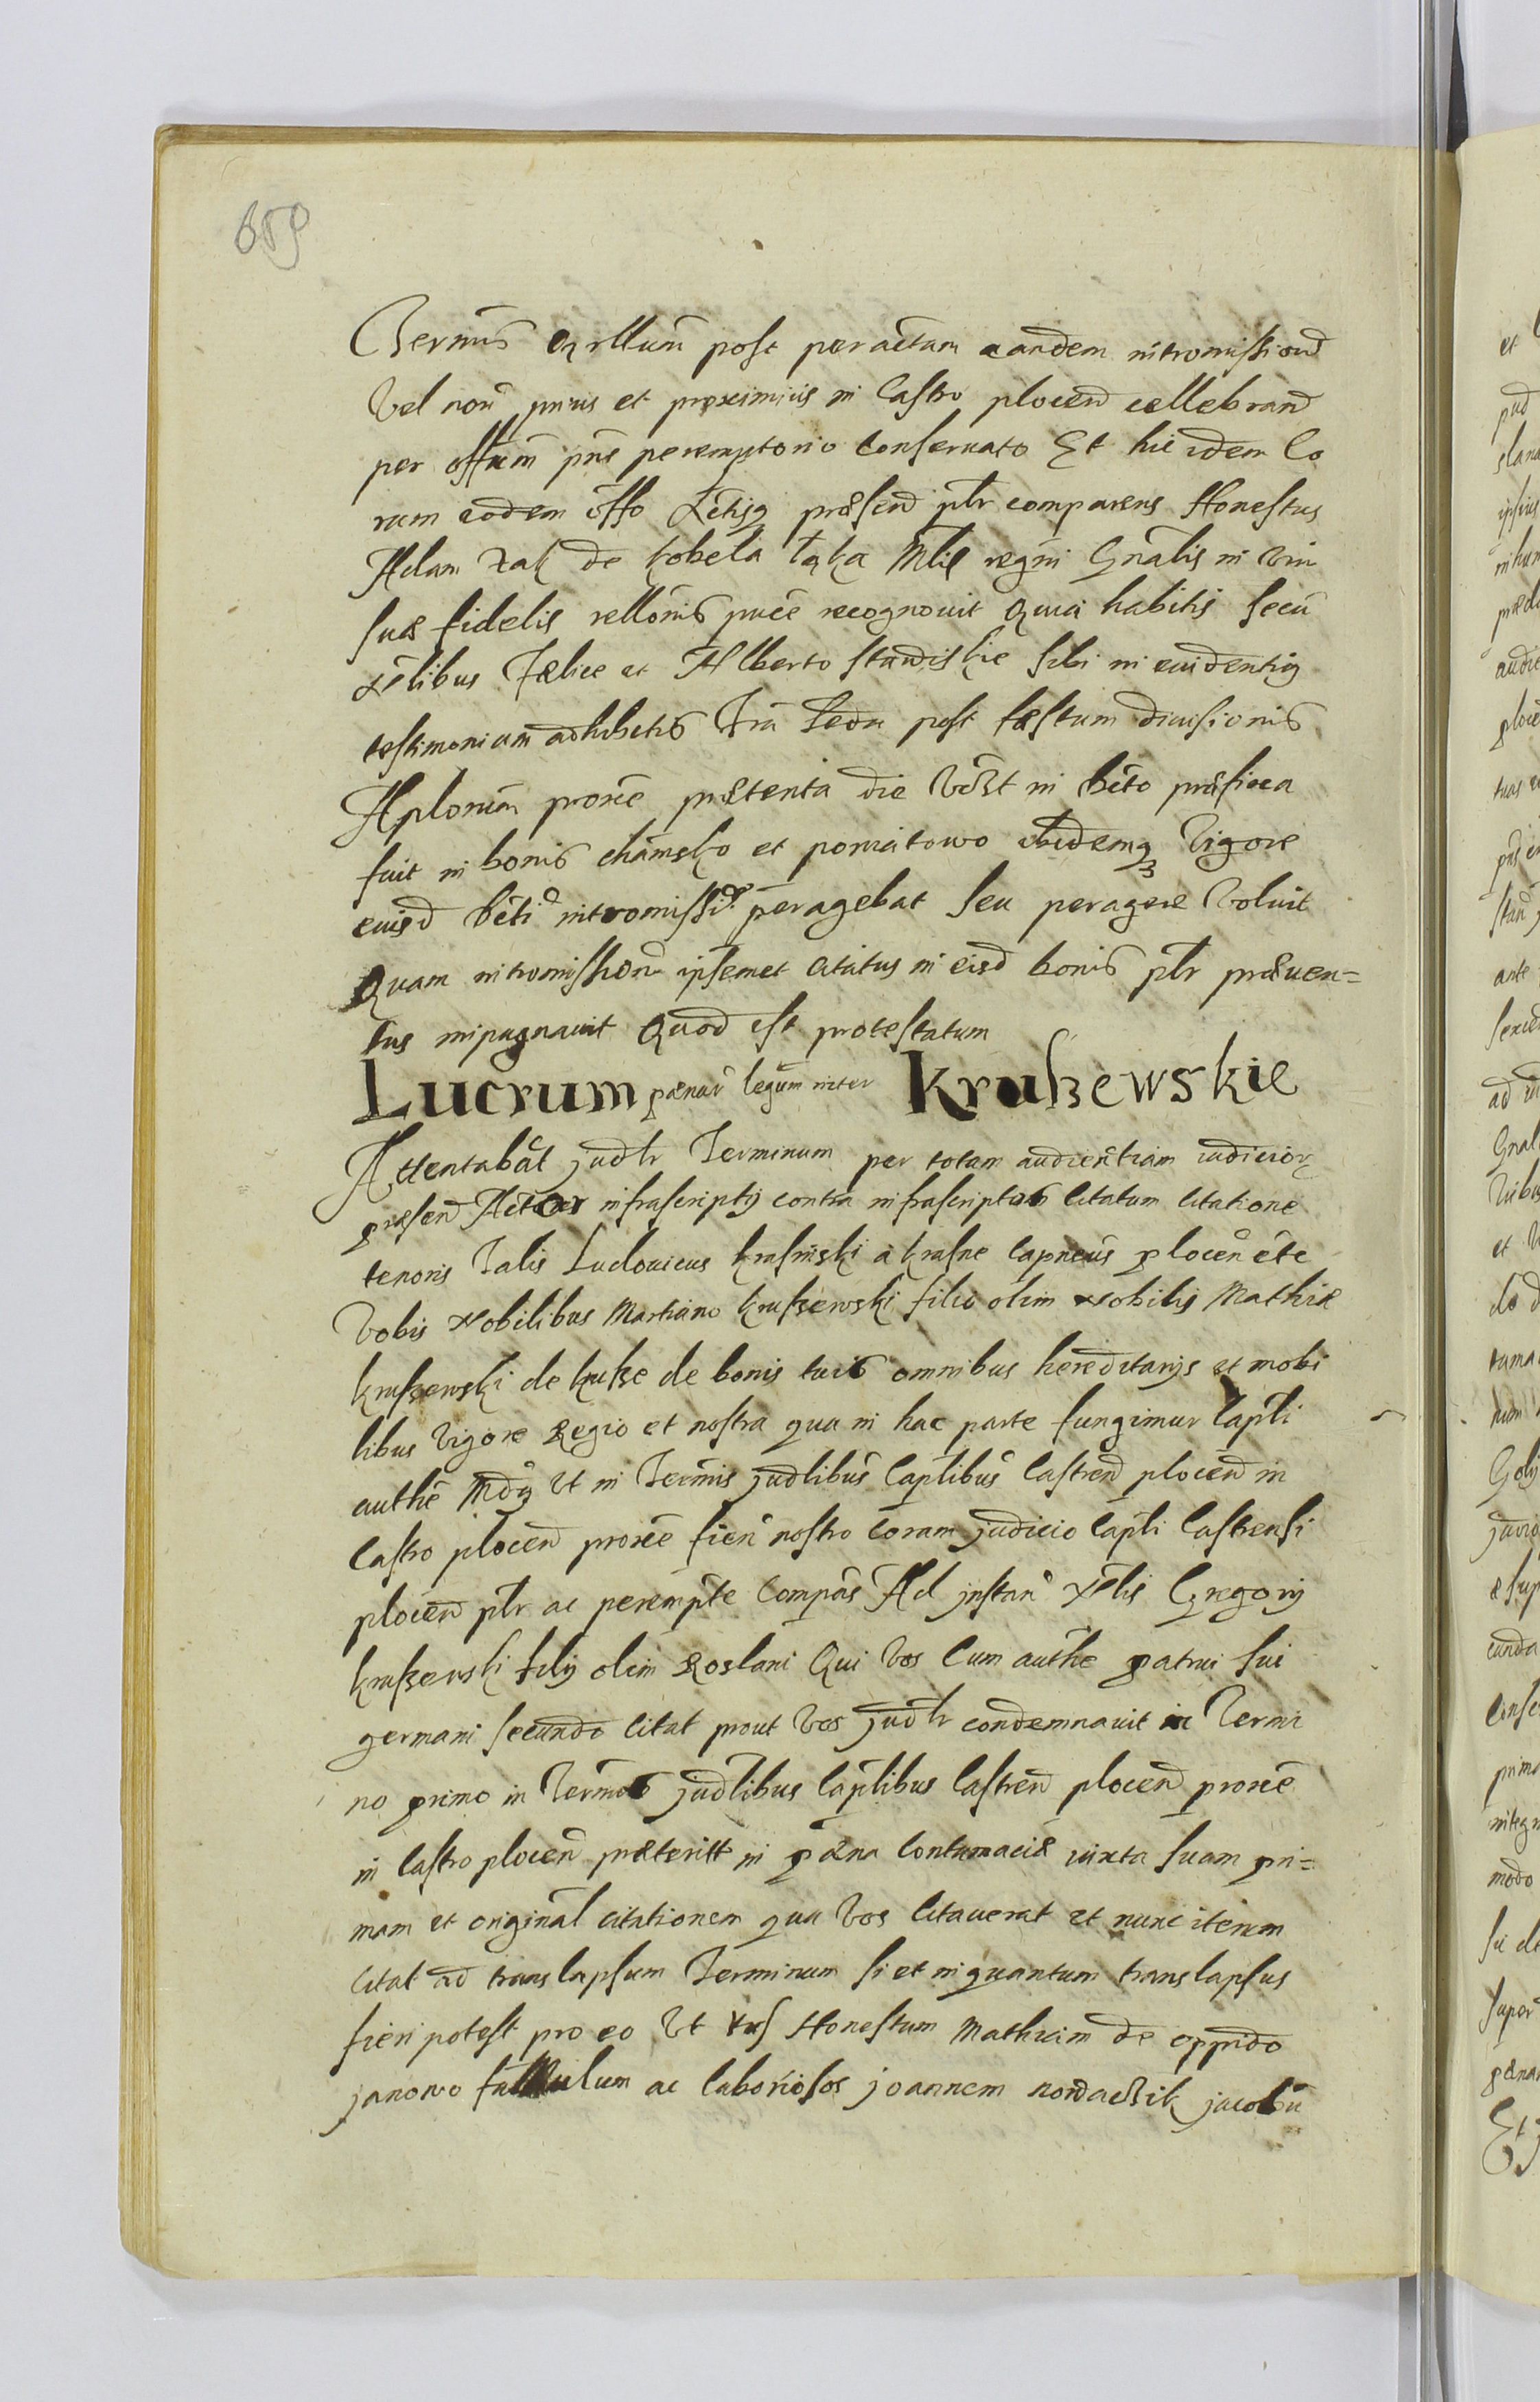 659
Termis qrllum post peractam eandem intromissiond
Vel non prius et proximius in Castro plocen cellebrand
per offum pns peremptorio Conseruato Et hic idem Co
ram eodem offo Actisq præsend ptr comparens Honestus
Adam Zak de kobela laka Mlis regni Gnalis in vim
suæ fidelis rellonis pnce recognouit Quia habitis secu
Nlibus Fælice et Alberto Stawiskie sibi in euidentius
testimonium adhibitis fria post fæstum diuisionis
Aplorum proxie prætenta die in præfixa
fuit in bonis chamsko et poniatowo ibidemq Vigore
euisd intromissio peragebat seu peragere Voluit
Quam intromissionem ipsemet citatus in eisd bonis ptr præuen=
tus impugnauit Quod est protestatum
Lucrum pænar legum inter Krußewskie
Attentabat judtr Terminum per totam audientiam iudicior
præsen Actor infrascriptus contra infrascriptum Citatum Citatione
tenoris Talis Ludouicus krasinski a krasne Capneus plocen etc
Vobis Nobilibus Martiano krußewski filio olim Nobilis Mathiæ
krußewski de kruße de bonis tuis omnibus hereditarys et mobi
libus Vigore Regio et nostra qua in hac parte fungimur Capli
authe Mdg Vt in Termis judlibus Caplibus Castren plocen in
Castro plocen proxie fien nostro Coram judicio Capli Castrensi
plocen ptr ac perempte Compas Ad instan Nlis Gregorij
krußewski filij olim Roslani Qui Vos Cum authe patrui sui
germani secundo Citat prout Vos judtr condemnauit in Termi
no primo in Termis judlibus Caplibus Castren plocen proxie
in Castro plocen præteritt in pæna Contumaciæ iuxta suam pri=
mam et original citationem qua Vos Citauerat et nunc iterum
Citat ad translapsum Terminum si et inquantum translapsus
fieri potest pro eo Vt Honestum Mathiam de oppido
janowo famulum ac laboriosos joannem jacobu